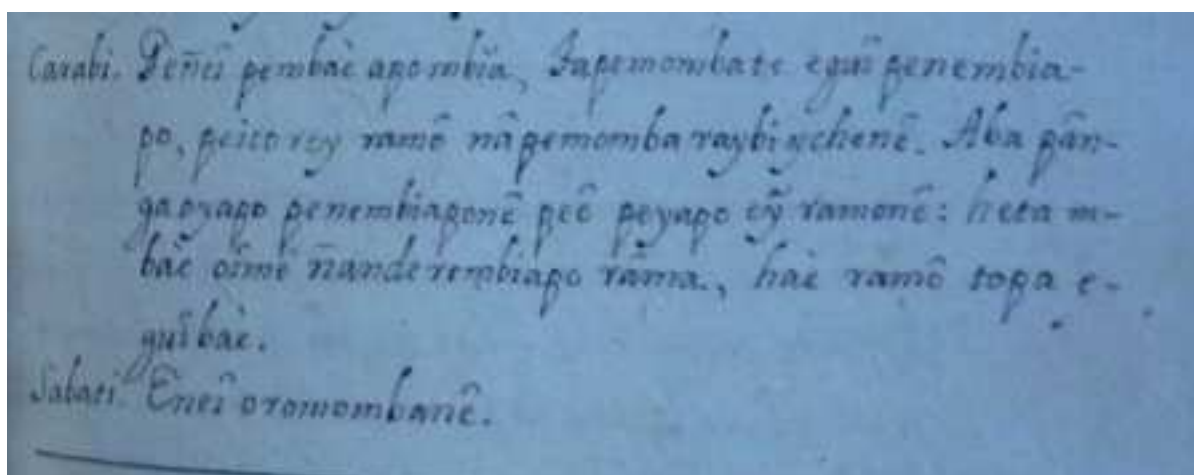 Carabi. Peñeȋ pembaè apo mbiâ, Tapemombate eguȋ penembia-
po, peico rey ramô nâ pemomba raybi ychenê. Aba pân-
ga oyapo penembiaponê peê peyapo eỹ ramonê: heta m-
baè oȋmê ñande rembiapo râma., haè ramô topa e-
guȋ baè.
Sabati. Êneȋ oromombanê.